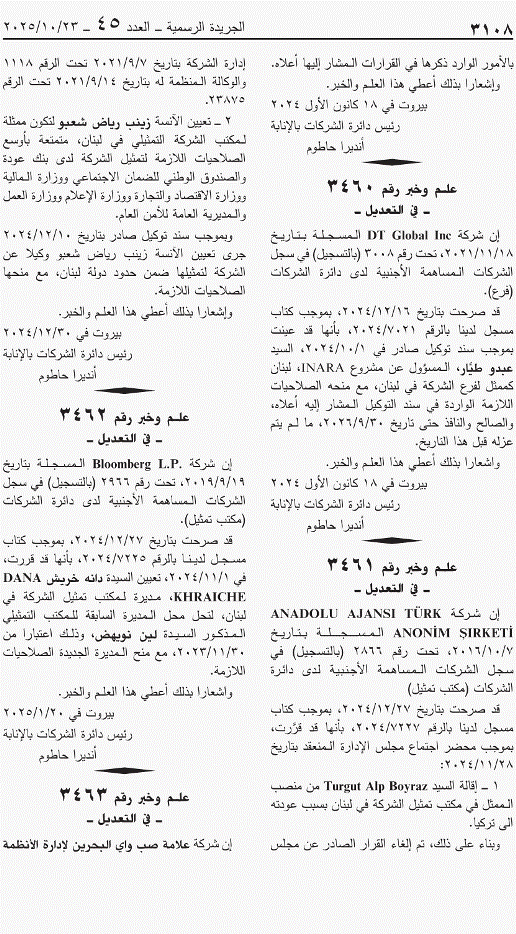 ٣١٠٨
الجريدة الرسمية – العدد ٤٥ – ٢٠٢٥/١٠/٢٣
بالأمور الوارد ذكرها في القرارات المشار إليها أعلاه.
وإشعارا بذلك أعطي هذا العلم والخبر.
بيروت في ١٨ كانون الأول ٢٠٢٤
رئيس دائرة الشركات بالإنابة
أنديرا حاطوم
علم وخبر رقم ٣٤٦٠
– في التعديل –
إن شركة DT Global Inc المسجلة بتاريخ
٢٠٢١/١١/١٨، تحت رقم ٣٠٠٨ (بالتسجيل) في سجل
الشركات المساهمة الأجنبية لدى دائرة الشركات
(فرع).
قد صرحت بتاريخ ٢٠٢٤/١٢/١٦، بموجب كتاب
مسجل لدينا بالرقم ٢٠٢٤/٧٠٢١، بأنها قد عينت
بموجب سند توكيل صادر في ٢٠٢٤/١٠/١، السيد
عبدو طيّار، المسؤول عن مشروع INARA، لبنان
كممثل لفرع الشركة في لبنان، مع منحه الصلاحيات
اللازمة الواردة في سند التوكيل المشار إليه أعلاه،
والصالح والنافذ حتى تاريخ ٢٠٢٦/٩/٣٠، ما لم يتم
عزله قبل هذا التاريخ.
واشعارا بذلك أعطي هذا العلم والخبر.
بيروت في ١٨ كانون الأول ٢٠٢٤
رئيس دائرة الشركات بالإنابة
أنديرا حاطوم
علم وخبر رقم ٣٤٦١
– في التعديل –
إن شركة ANADOLU AJANSI TÜRK
ANONİM ŞIRKETİ المسجلة بتاريخ
٢٠١٦/١٠/٧، تحت رقم ٢٨٦٦ (بالتسجيل) في
سجل الشركات المساهمة الأجنبية لدى دائرة
الشركات (مكتب تمثيل)
قد صرحت بتاريخ ٢٠٢٤/١٢/٢٧، بموجب كتاب
مسجل لدينا بالرقم ٢٠٢٤/٧٢٢٧، بأنها قد قرَّرت،
بموجب محضر اجتماع مجلس الإدارة المنعقد بتاريخ
٢٠٢٤/١١/٢٨:
١ – إقالة السيد Turgut Alp Boyraz من منصب
الممثل في مكتب تمثيل الشركة في لبنان بسبب عودته
الى تركيا.
وبناء على ذلك، تم إلغاء القرار الصادر عن مجلس
إدارة الشركة بتاريخ ٢٠٢١/٩/٧ تحت الرقم ١١١٨
والوكالة المنظمة له بتاريخ ٢٠٢١/٩/١٤ تحت الرقم
٢٣٨٧٥.
٢ – تعيين الآنسة زينب رياض شعبو لتكون ممثلة
لمكتب الشركة التمثيلي في لبنان، متمتعة بأوسع
الصلاحيات اللازمة لتمثيل الشركة لدى بنك عودة
والصندوق الوطني للضمان الاجتماعي ووزارة المالية
ووزارة الاقتصاد والتجارة ووزارة الإعلام ووزارة العمل
والمديرية العامة للأمن العام.
وبموجب سند توكيل صادر بتاريخ ٢٠٢٤/١٢/١٠
جرى تعيين الآنسة زينب رياض شعبو وكيلا عن
الشركة لتمثيلها ضمن حدود دولة لبنان، مع منحها
الصلاحيات اللازمة.
وإشعارا بذلك أعطي هذا العلم والخبر.
بيروت في ٢٠٢٤/١٢/٣٠
رئيس دائرة الشركات بالإنابة
أنديرا حاطوم
علم وخبر رقم ٣٤٦٢
– في التعديل –
إن شركة Bloomberg L.P. المسجلة بتاريخ
٢٠١٩/٩/١٩، تحت رقم ٢٩٦٦ (بالتسجيل) في سجل
الشركات المساهمة الأجنبية لدى دائرة الشركات
(مكتب تمثيل).
قد صرحت بتاريخ ٢٠٢٤/١٢/٢٧، بموجب كتاب
مسجل لدينا بالرقم ٢٠٢٤/٧٢٢٥، بأنها قد قررت،
في ٢٠٢٤/١١/١، تعيين السيدة دانه خريش DANA
KHRAICHE، مديرة لمكتب تمثيل الشركة في
لبنان، لتحل محل المديرة السابقة للمكتب التمثيلي
المذكور السيدة لين نويهض، وذلك اعتبارا من
٢٠٢٣/١١/٣٠، مع منح المديرة الجديدة الصلاحيات
اللازمة.
واشعارا بذلك أعطي هذا العلم والخبر.
بيروت في ٢٠٢٥/١/٢٠
رئيس دائرة الشركات بالإنابة
أنديرا حاطوم
علم وخبر رقم ٣٤٦٣
– في التعديل –
إن شركة علامة صب واي البحرين لإدارة الأنظمة